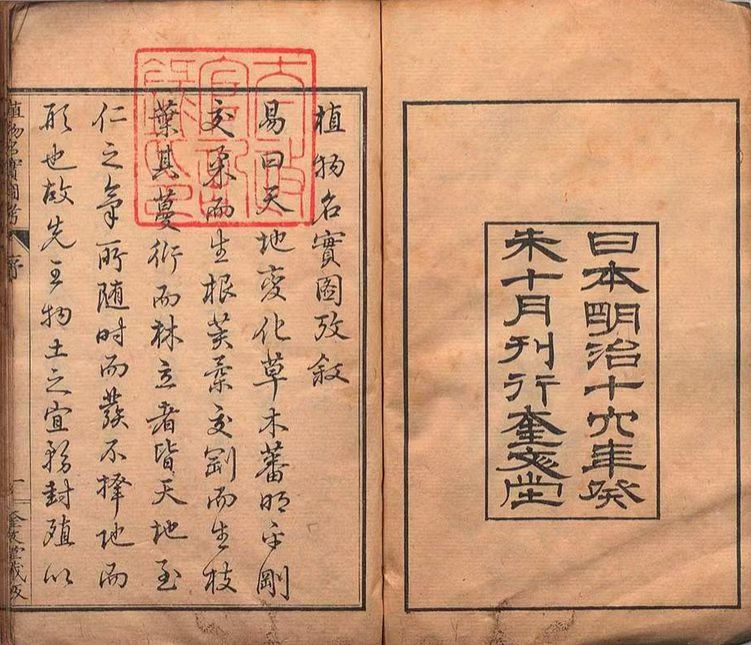 日本明治十六年癸
未十月刊行奎文堂
植物名實圖攷叙
易曰天地變化草木蕃明乎剛
交柔而生根荄柔交剛而生枝
葉其蔓衍而林立者皆天地至
仁之氣所随时而發不擇地而
形也故先王物土之宜務封殖以
植物名實圖考
序
一
奎文堂藏版